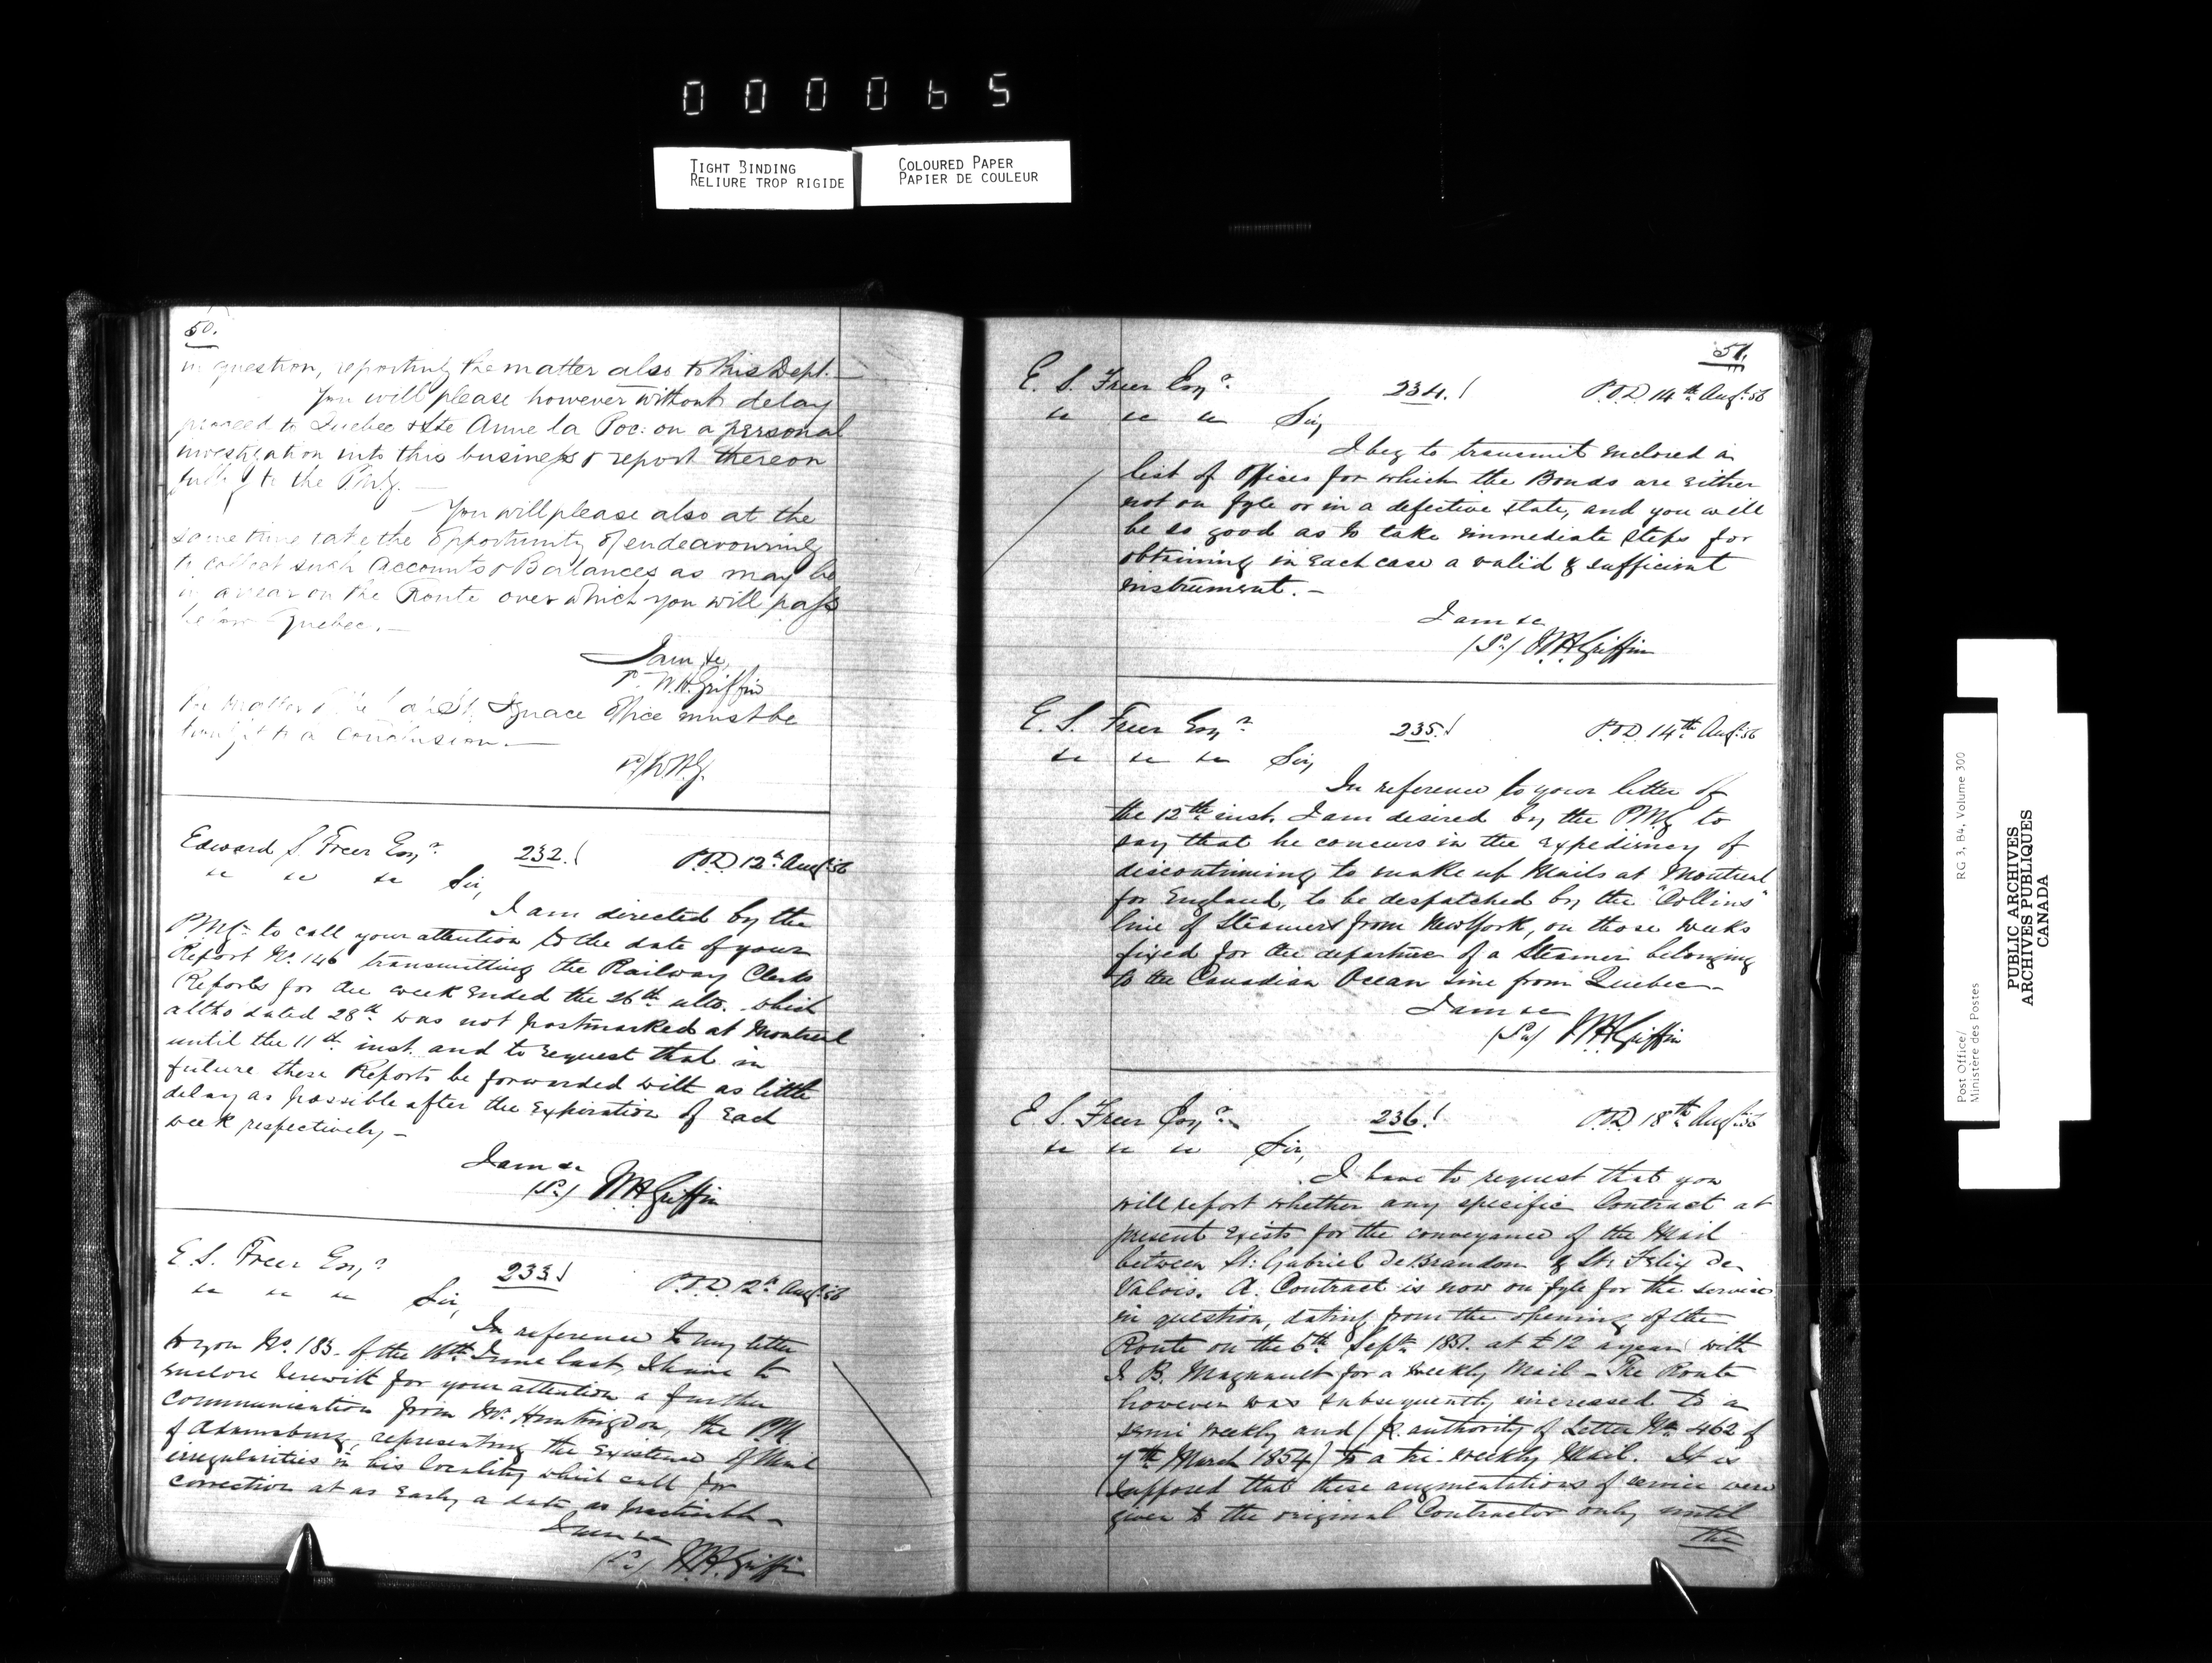 000065
TIGHT BINDING
RELIURE TROP RIGIDE
COLOURED PAPER
PAPIER DE COULEUR
50.
in question, reporting the matter also to this Dept.
You will please however without delay
proceed to Quebec & Ste Anne la Poc: on a personal
investigation into this business & report thereon
fully to the P.M.G. —
You will please also at the
same time take the opportunity of endeavouring
to collect such Accounts & Balances as may be
in arrear on the Route over which you will pass
below Quebec. —
I am &c,
W.H. Griffin
The matter of the Ignace Office must be
brought to a conclusion. —
W.H.G.
Edward S. Freer Esqr. 232. P.O.D. 12th Augt. 56
" " " Sir,
I am directed by the
P.M.G. to call your attention to the date of your
Report No. 146 transmitting the Railway Clerks
Reports for the week ended the 26th ulto. which
altho dated 28th was not postmarked at Montreal
until the 11th inst. and to request that in
future these Reports be forwarded with as little
delay as possible after the expiration of each
week respectively —
I am &c
(Sd.) W.H. Griffin
E S. Freer Esqr. 233. P.O.D. 12th Augt. 56
" " " Sir,
In reference to my letter
to you No. 183. of the 16th June last, I have to
enclose herewith for your attention a further
communication from Mr. Huntingdon, the P.M.
of Adamsburg, representing the existence of Mail
irregularities in his locality which call for
correction at as early a date as practicable —
I am &c
(Sd.) W.H. Griffin
51.
E. S. Freer Esqr. 234. P.O.D. 14th Augt. 56
" " " Sir,
I beg to transmit enclosed a
list of Offices for which the Bonds are either
not on fyle or in a defective state, and you will
be so good as to take immediate steps for
obtaining in each case a valid & sufficient
instrument. —
I am &c
(Sd.) W.H. Griffin
E. S. Freer Esqr. 235. P.O.D. 14th Augt. 56
" " " Sir,
In reference to your letter of
the 12th inst. I am desired by the P.M.G. to
say that he concurs in the expediency of
discontinuing to make up Mails at Montreal
for England, to be despatched by the "Collins"
line of Steamers from New York, on those weeks
fixed for the departure of a Steamer belonging
to the Canadian Ocean Line from Quebec —
I am &c
(Sd.) W.H. Griffin
E S. Freer Esqr. 236. P.O.D. 18th Augt. 56
" " " Sir,
I have to request that you
will report whether any specific Contract at
present exists for the conveyance of the Mail
between St. Gabriel de Brandon & St. Felix de
Valois. A Contract is now on fyle for the service
in question, dating from the opening of the
Route on the 6th Septr 1851. at £12 a year with
J. B. Magnault for a weekly Mail — The Route
however was subsequently increased to a
semi weekly and (p. authority of Letter No. 462 of
7th March 1854) to a tri-weekly Mail. It is
supposed that these augmentations of service were
given to the original Contractor only until
the
Post Office/
Ministère des Postes
RG 3, B4, Volume 300
PUBLIC ARCHIVES
ARCHIVES PUBLIQUES
CANADA